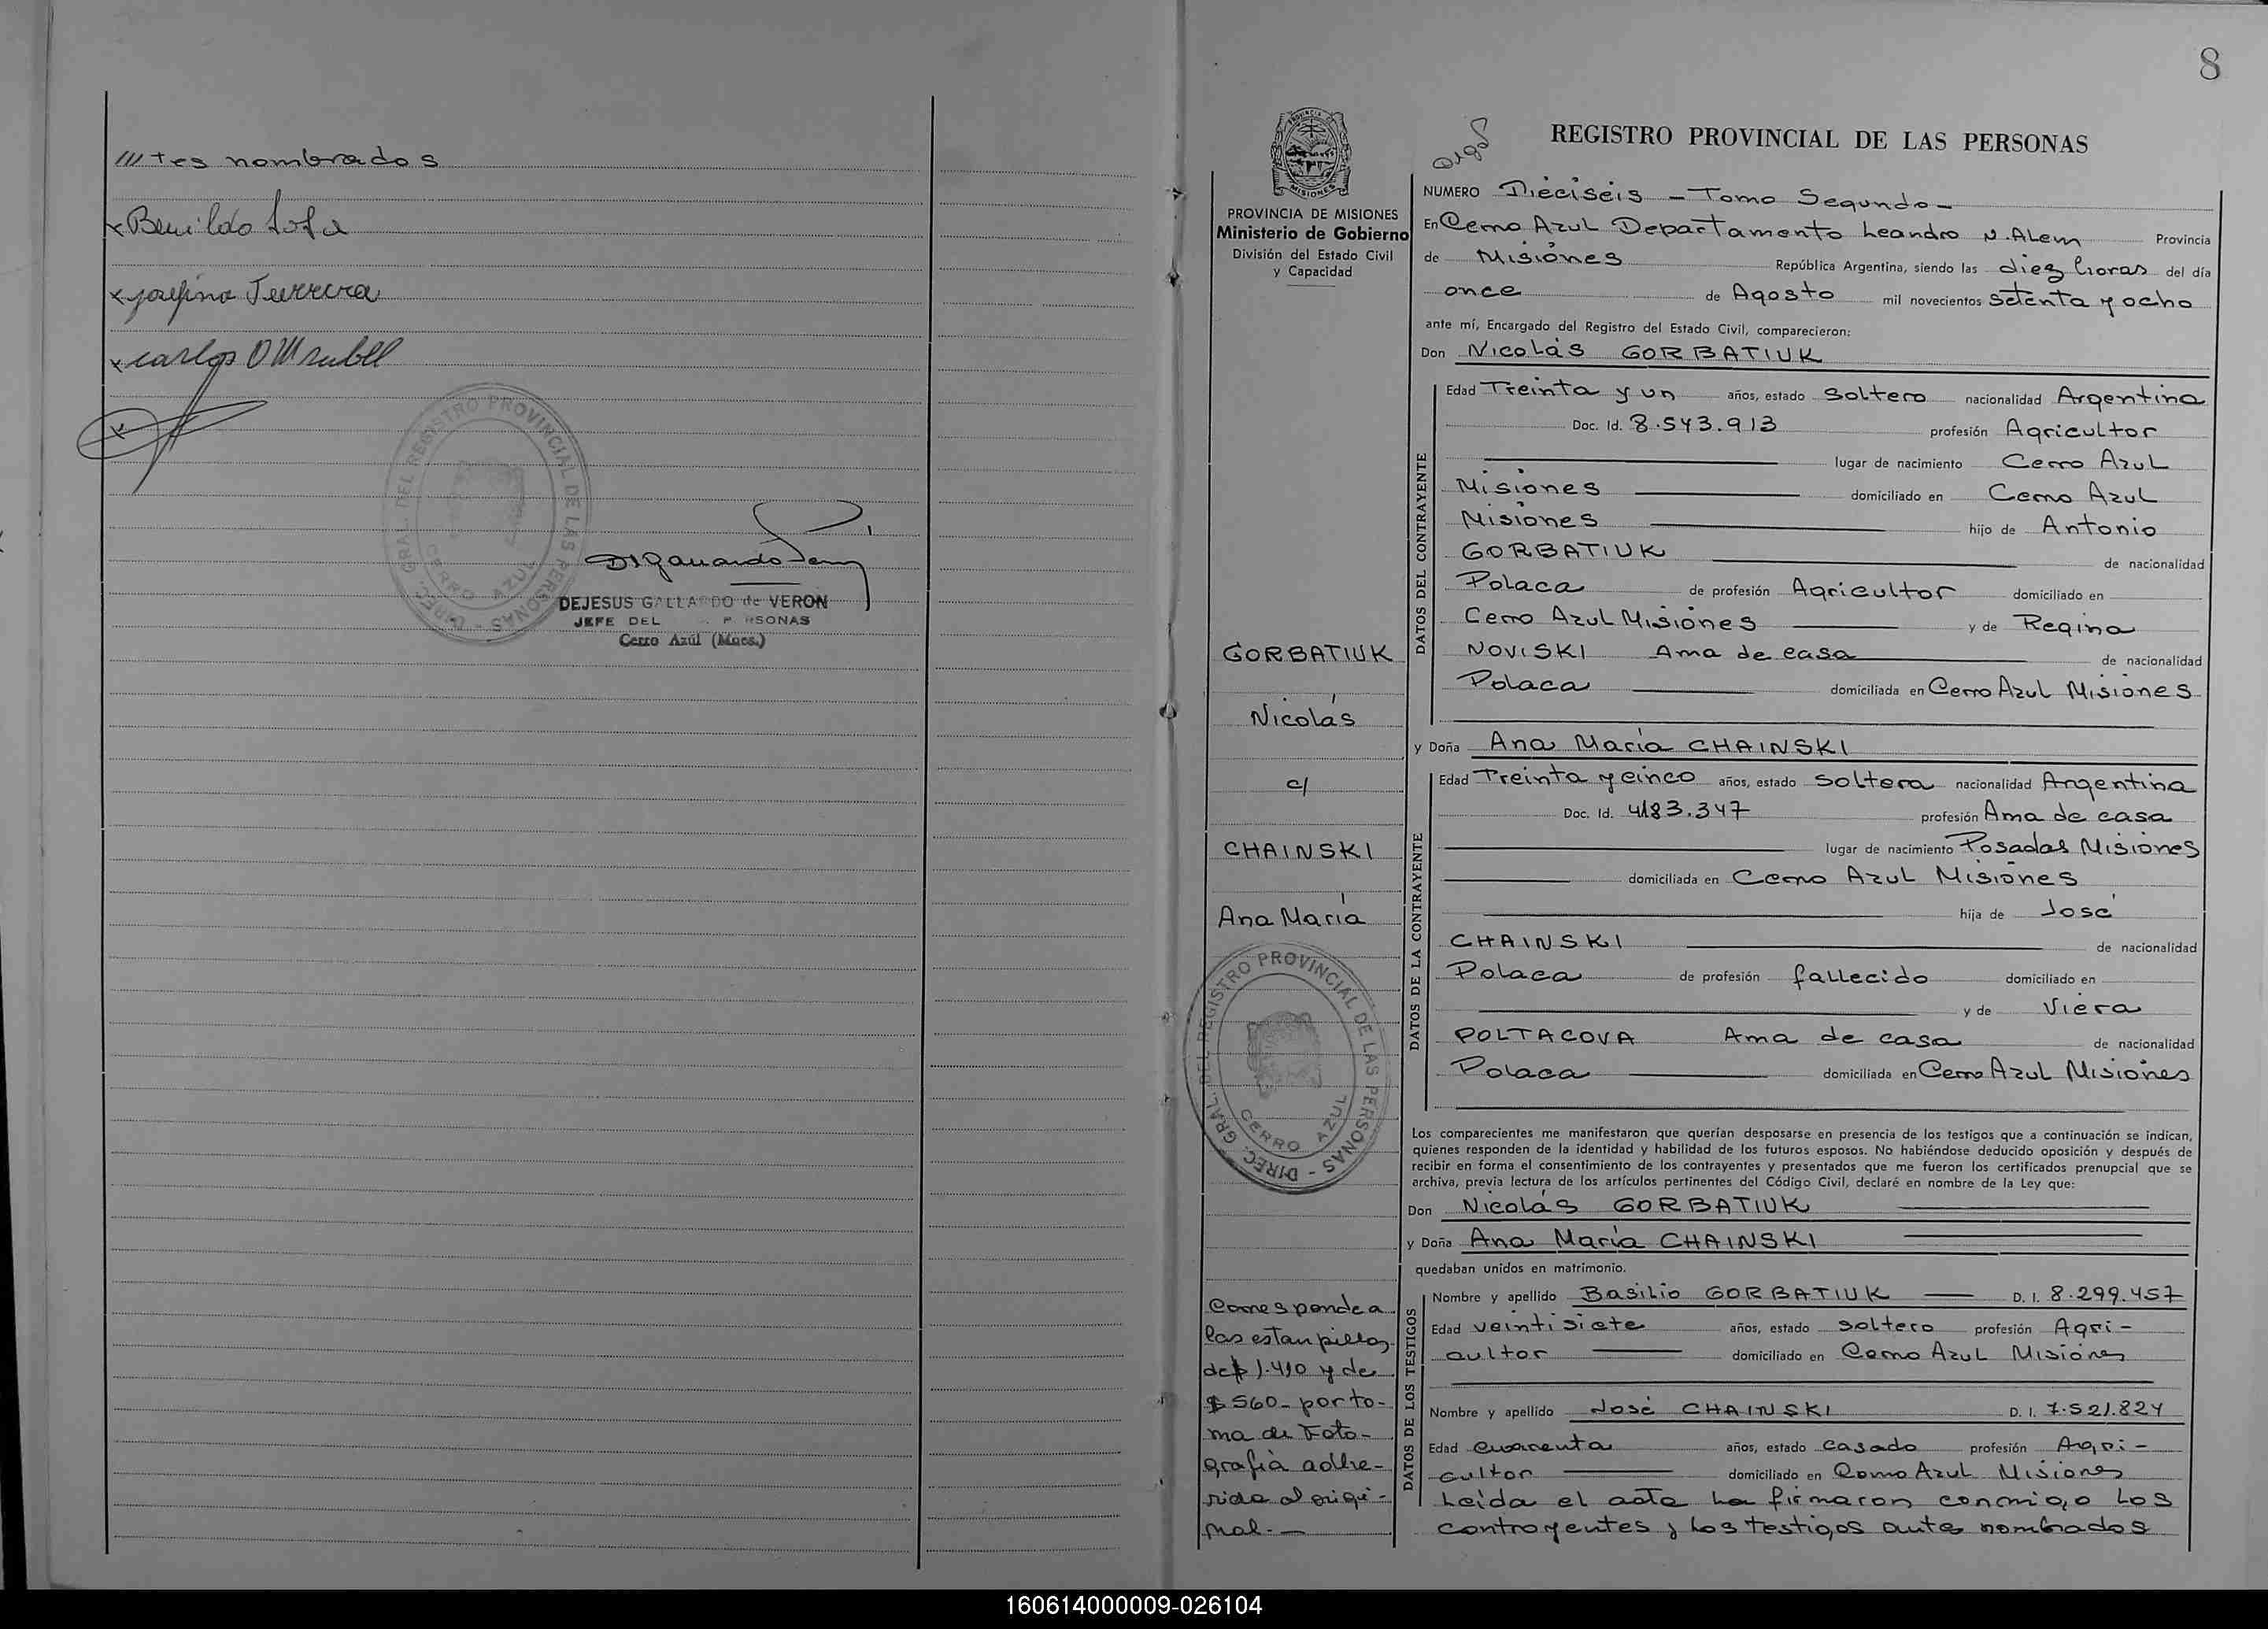 ///tes nombrados
x Benildo Sosa
x Josefina Ferreira
x Carlos D
x
REGISTRO PROVINCIAL DE LAS PERSONAS
CERRO AZUL
DIREC. GRAL. DEL
DEJESUS GALLARDO de VERON
JEFE DEL P RSONAS
Cerro Azúl (Mnes.)
8
PROVINCIA DE MISIONES
Ministerio de Gobierno
División del Estado Civil
y Capacidad
GORBATIUK
Nicolás
c/
CHAINSKI
Ana María
DIREC. GRAL. DEL REGISTRO PROVINCIAL DE LAS PERSONAS
CERRO AZUL
Corresponde a
las estanpillas
de $ 1.410 y de
$ 560- por to-
ma de Foto-
grafia adhe-
rida al origi-
nal.-
REGISTRO PROVINCIAL DE LAS PERSONAS
NUMERO Diéciséis - Tomo Segundo -
En Cerro Azul Departamento Leandro N. Alem Provincia
de Misiones República Argentina, siendo las diez horas del día
once de Agosto mil novecientos setenta y ocho
ante mí, Encargado del Registro del Estado Civil, comparecieron:
Don Nicolás GORBATIUK
DATOS DEL CONTRAYENTE
Edad Treinta y un años, estado soltero nacionalidad Argentina
Doc. Id. 8.543.913 profesión Agricultor
lugar de nacimiento Cerro Azul
Misiones domiciliado en Cerro Azul
Misiones hijo de Antonio
GORBATIUK de nacionalidad
Polaca de profesión Agricultor domiciliado en
Cerro Azul Misiones y de Regina
NOVISKI Ama de casa de nacionalidad
Polaca domiciliada en Cerro Azul Misiones
y Doña Ana María CHAINSKI
DATOS DE LA CONTRAYENTE
Edad Treinta y cinco años, estado soltera nacionalidad Argentina
Doc. Id. 4183.347 profesión Ama de casa
lugar de nacimiento Posadas Misiones
domiciliada en Cerro Azul Misiones
hija de José
CHAINSKI de nacionalidad
Polaca de profesión fallecido domiciliado en
y de Viera
POLTACOVA Ama de casa de nacionalidad
Polaca domiciliada en Cerro Azul Misiones
Los comparecientes me manifestaron que querían desposarse en presencia de los testigos que a continuación se indican,
quienes responden de la identidad y habilidad de los futuros esposos. No habiéndose deducido oposición y después de
recibir en forma el consentimiento de los contrayentes y presentados que me fueron los certificados prenupcial que se
archiva, previa lectura de los artículos pertinentes del Código Civil, declaré en nombre de la Ley que:
Don Nicolás GORBATIUK
y Doña Ana María CHAINSKI
quedaban unidos en matrimonio.
DATOS DE LOS TESTIGOS
Nombre y apellido Basilio GORBATIUK D. I. 8.299.457
Edad veintisiete años, estado soltero profesión Agri-
cultor domiciliado en Cerro Azul Misiones
Nombre y apellido José CHAINSKI D. I. 7.521.824
Edad cuarenta años, estado casado profesión Agri-
cultor domiciliado en Cerro Azul Misiones
Leída el acta la firmaron conmigo los
contrayentes y los testigos antes nombrados
160614000009-026104